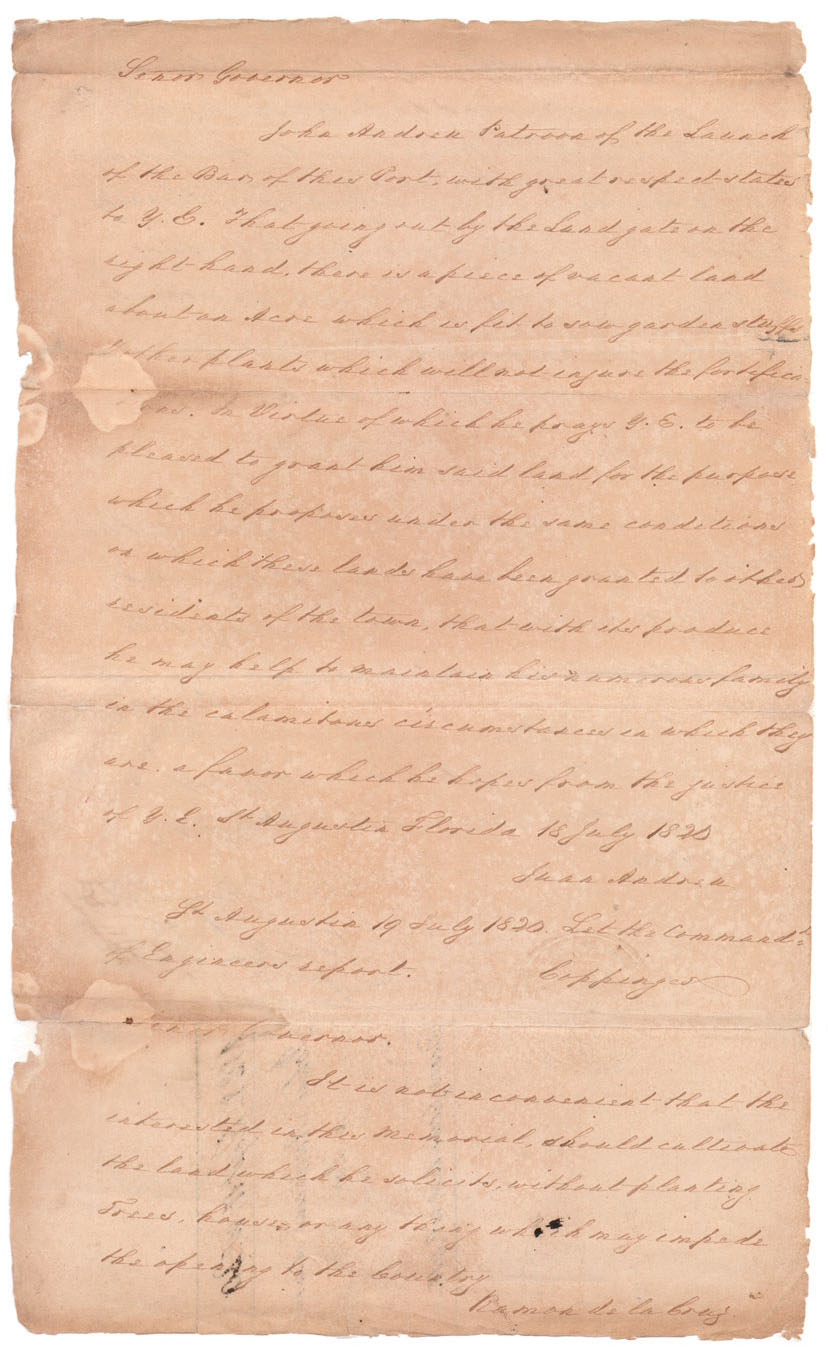 Senor Governor
John Andreu Patroon of the Launch
of the Bar of this Port, with great respect states
to Y. E. That going out by the Land gate on the
right hand, there is a piece of vacant land
about an Acre which is fit to sow garden stuffs
other plants which will not injure the fortifica
tions. In Virtue of which he prays Y. E. to be
pleased to grant him said land for the purpose
which he proposes under the same conditions
on which these lands have been granted to other
residents of the town, that with its produce
he may help to maintain his numerous family
in the calamitous circumstances in which they
are. a favor which he hopes from the justice
of Y. E. St Augustin Florida 18 July 1820
Juan Andreu
St Augustin 19 July 1820. Let the Command.t
of Engineers report. Coppinger
Senor Governor.
It is not inconvenient that the
interested in this Memorial, should cultivate
the land which he solicits, without planting
Trees, house, or any thing which may impede
the opening to the Country
Ramon de la Cruz